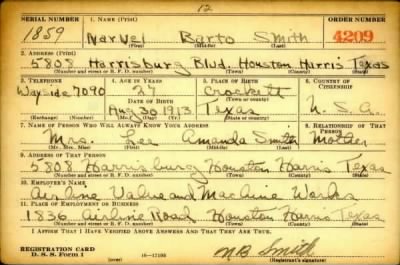 12
SERIAL NUMBER 1. NAME (Print) ORDER NUMBER
1859 Narvel Barto Smith 4209
(First) (Middle) (Last)
2. ADDRESS (Print)
5808 Harrisburg Blvd. Houston Harris Texas
(Number and street or R. F. D. number) (Town) (County) (State)
3. TELEPHONE 4. AGE IN YEARS 5. PLACE OF BIRTH 6. COUNTRY OF CITIZENSHIP
Wayside 7090 27 Crockett
DATE OF BIRTH (Town or county)
Aug 30 1913 Texas U. S. A.
(Exchange) (Number) (Mo.) (Day) (Yr.) (State or country)
7. NAME OF PERSON WHO WILL ALWAYS KNOW YOUR ADDRESS 8. RELATIONSHIP OF THAT PERSON
Mrs. Lee Amanda Smith Mother
(Mr., Mrs., Miss) (First) (Middle) (Last)
9. ADDRESS OF THAT PERSON
5808 Harrisburg Houston Harris Texas
(Number and street or R. F. D. number) (Town) (County) (State)
10. EMPLOYER'S NAME
Airline Valve and Machine Works
11. PLACE OF EMPLOYMENT OR BUSINESS
1836 Airline Road Houston Harris Texas
(Number and street or R. F. D. number) (Town) (County) (State)
I AFFIRM THAT I HAVE VERIFIED ABOVE ANSWERS AND THAT THEY ARE TRUE.
REGISTRATION CARD
D. S. S. Form 1 16-17105 N B Smith
(Registrant's signature)